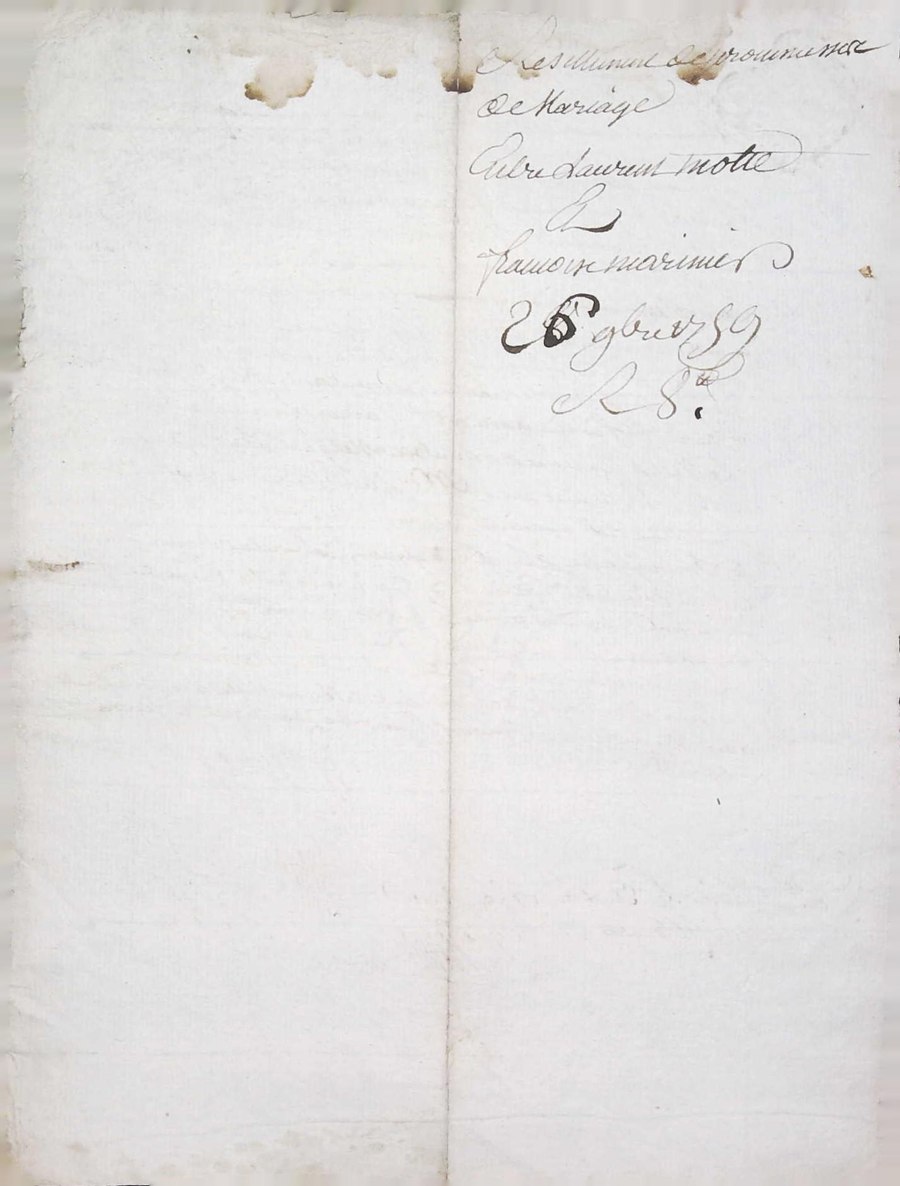 Resiliment de promesse
de Mariage
Entre Laurent motte
Et
francoise marinier
26 9bre 1759
R